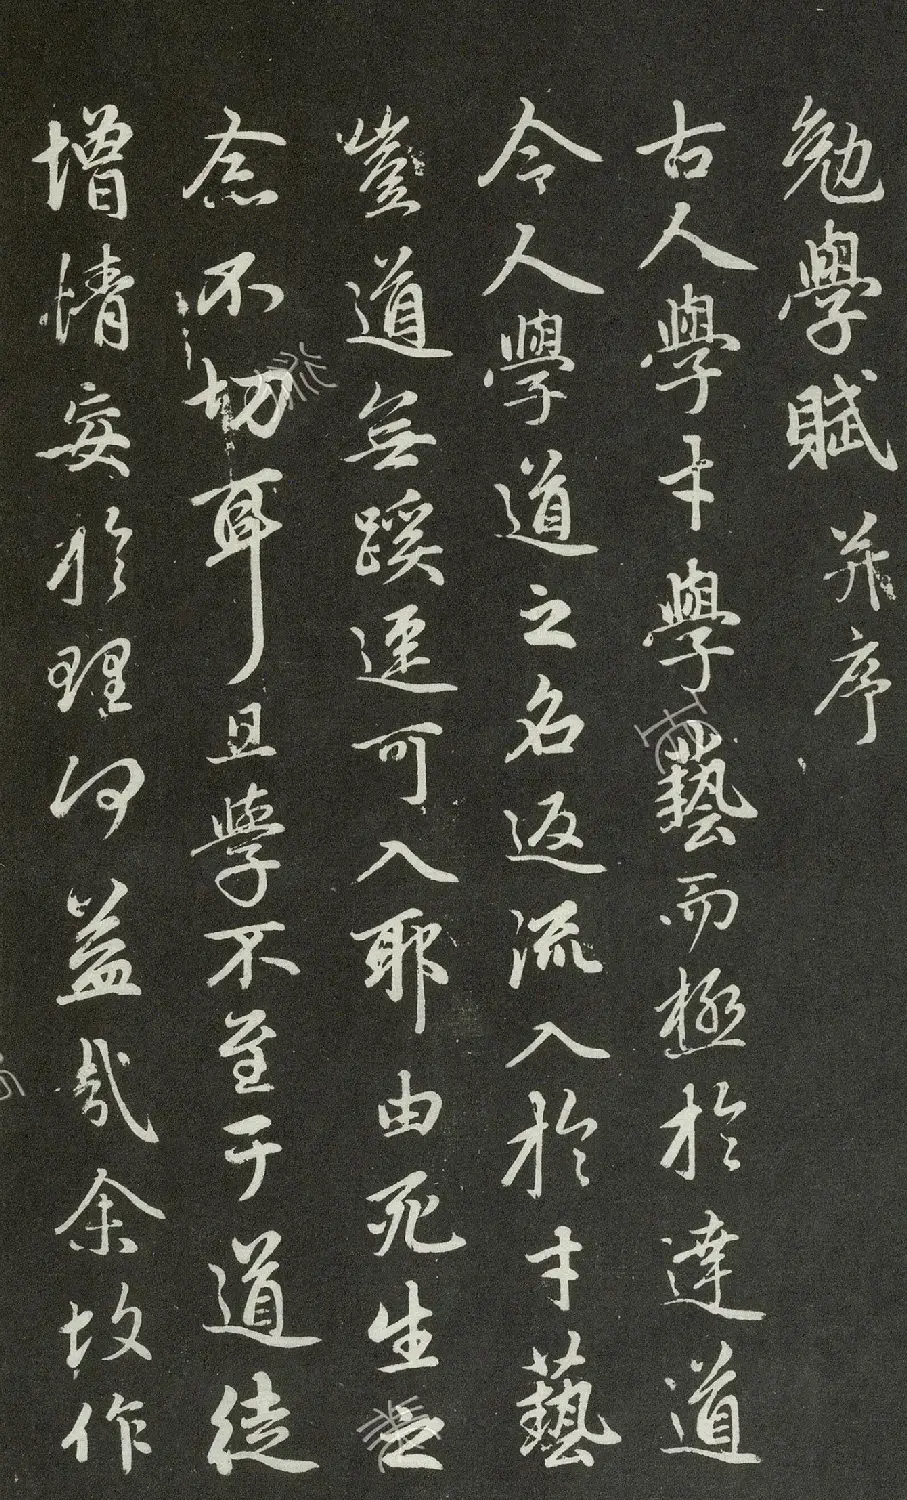 勉學賦并序
古人學才學藝而極於達道
今人學道之名返流入於才藝
豈道無蹊逕可入耶由死生之
念不切耳且學不至于道徒
增情妄於理何益哉余故作